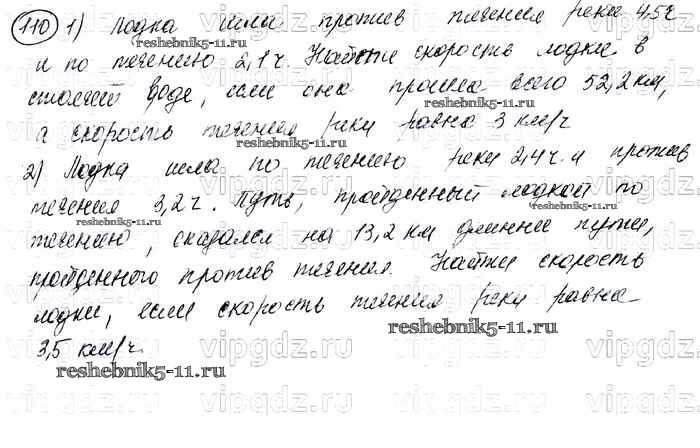 110 1) Лодка шла против течения реки 4,5ч
reshebnik5-11.ru
и по течению 2,1ч. Найти скорость лодки в
стоячей воде, если она прошла всего 52,2 км,
reshebnik5-11.ru
а скорость течения реки равна 3 км/ч
reshebnik5-11.ru
2) Лодка шла по течению реки 2,4ч. и против
течения 3,2ч. Путь, пройденный лодкой по
reshebnik5-11.ru
reshebnik5-11.ru
течению, оказался на 13,2 км длиннее пути,
пройденного против течения. Найти скорость
лодки, если скорость течения реки равна
reshebnik5-11.ru
3,5 км/ч.
reshebnik5-11.ru
vipgdz.ru vipgdz.ru vipgdz.ru